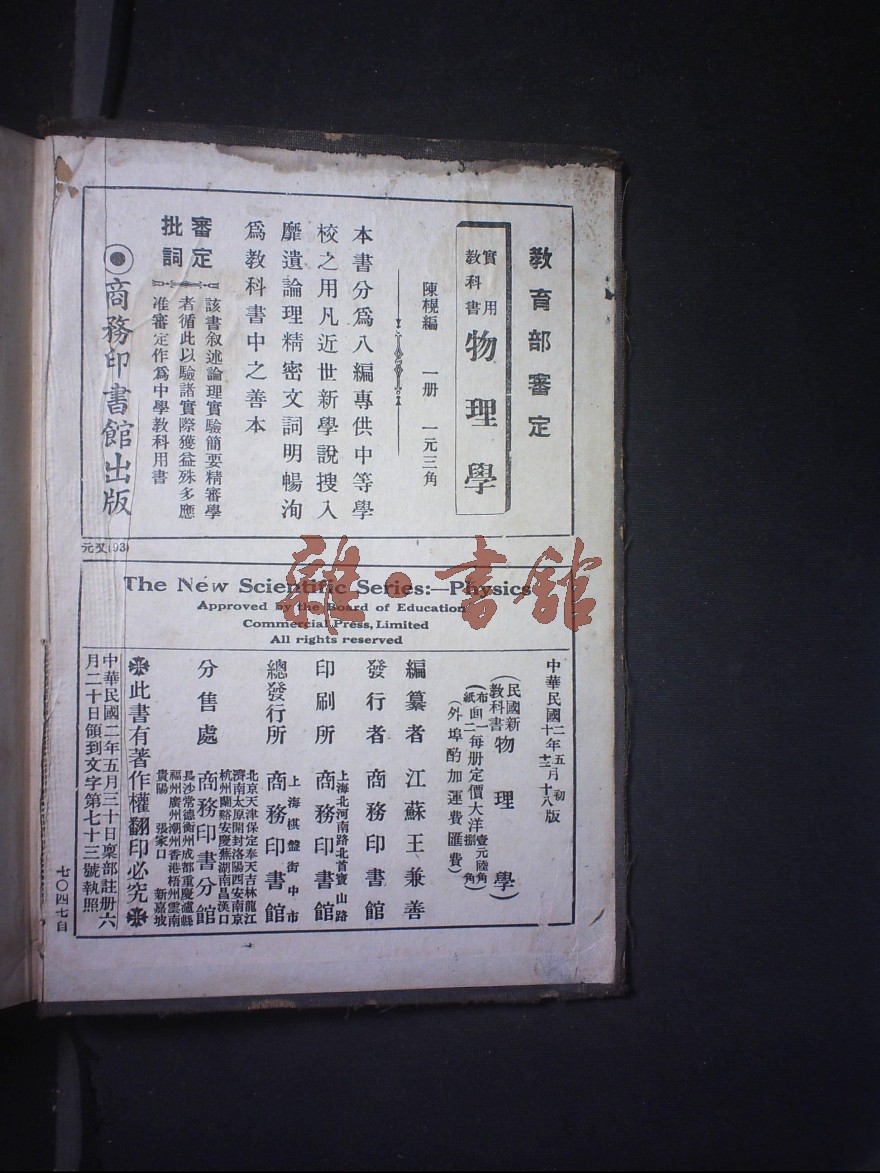 教育部審定
實用教科書 物理學
陳榥編 一册 一元三角
本書分爲八編專供中等學
校之用凡近世新學說搜入
靡遺論理精密文詞明暢洵
爲教科書中之善本
審定批詞
該書叙述論理實驗簡要精審學
者循此以驗諸實際獲益殊多應
准審定作爲中學教科用書
商務印書館出版
元又(93)
The New Scientific Series:—Physics
Approved by the Board of Education
Commercial Press, Limited
All rights reserved
中華民國二年五月初版
十二年十二月十八版
(民國新教科書 物理學)
(布面一 每册定價大洋壹元陸角)
(紙面二 捌角)
(外埠酌加運費匯費)
編纂者 江蘇王兼善
發行者 商務印書館
印刷所 上海北河南路北首寶山路 商務印書館
總發行所 上海棋盤街中市 商務印書館
分售處 商務印書分館
北京天津保定奉天吉林龍江
濟南太原開封洛陽西安南京
杭州蘭谿安慶蕪湖南昌漢口
長沙常德衡州成都重慶瀘縣
福州廣州潮州香港梧州雲南
貴陽 張家口 新嘉坡
此書有著作權翻印必究
中華民國二年五月三十日稟部註册六
月二十日領到文字第七十三號執照
七〇四七自
雜·書館